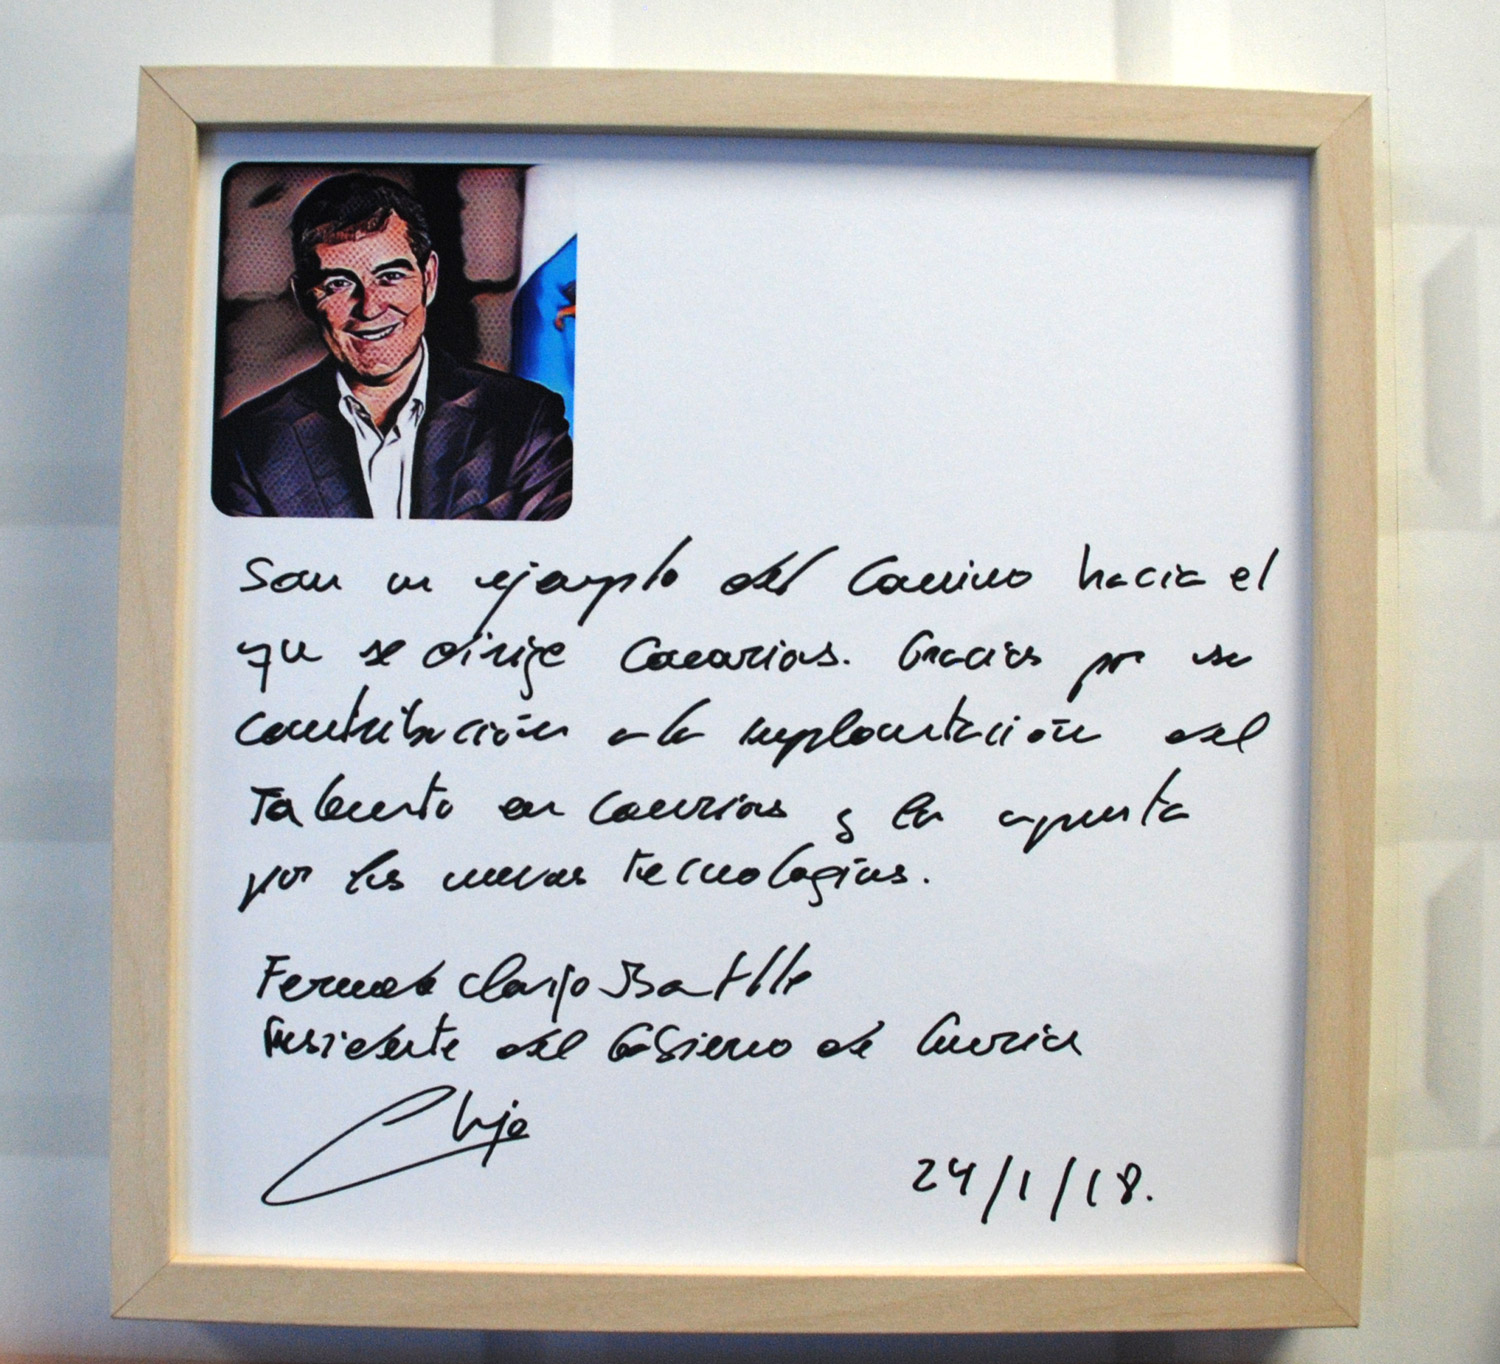 Son un ejemplo del Camino hacia el
que se dirige Canarias. Gracias por su
contribución a la implantación del
Talento en Canarias y la apuesta
por las nuevas tecnologías.
Fernando Clavijo Batlle
Presidente del Gobierno de Canarias
Clavijo
24/1/18.